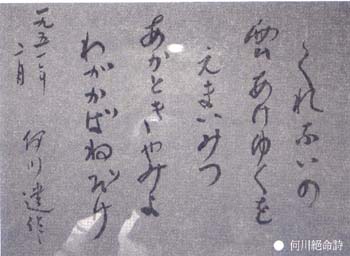 くれないの
雲あけゆくを
えまいみつ
あかときやみよ
わがかばねぶけ
一九五一年
二月
何川遺作
● 何川絕命詩